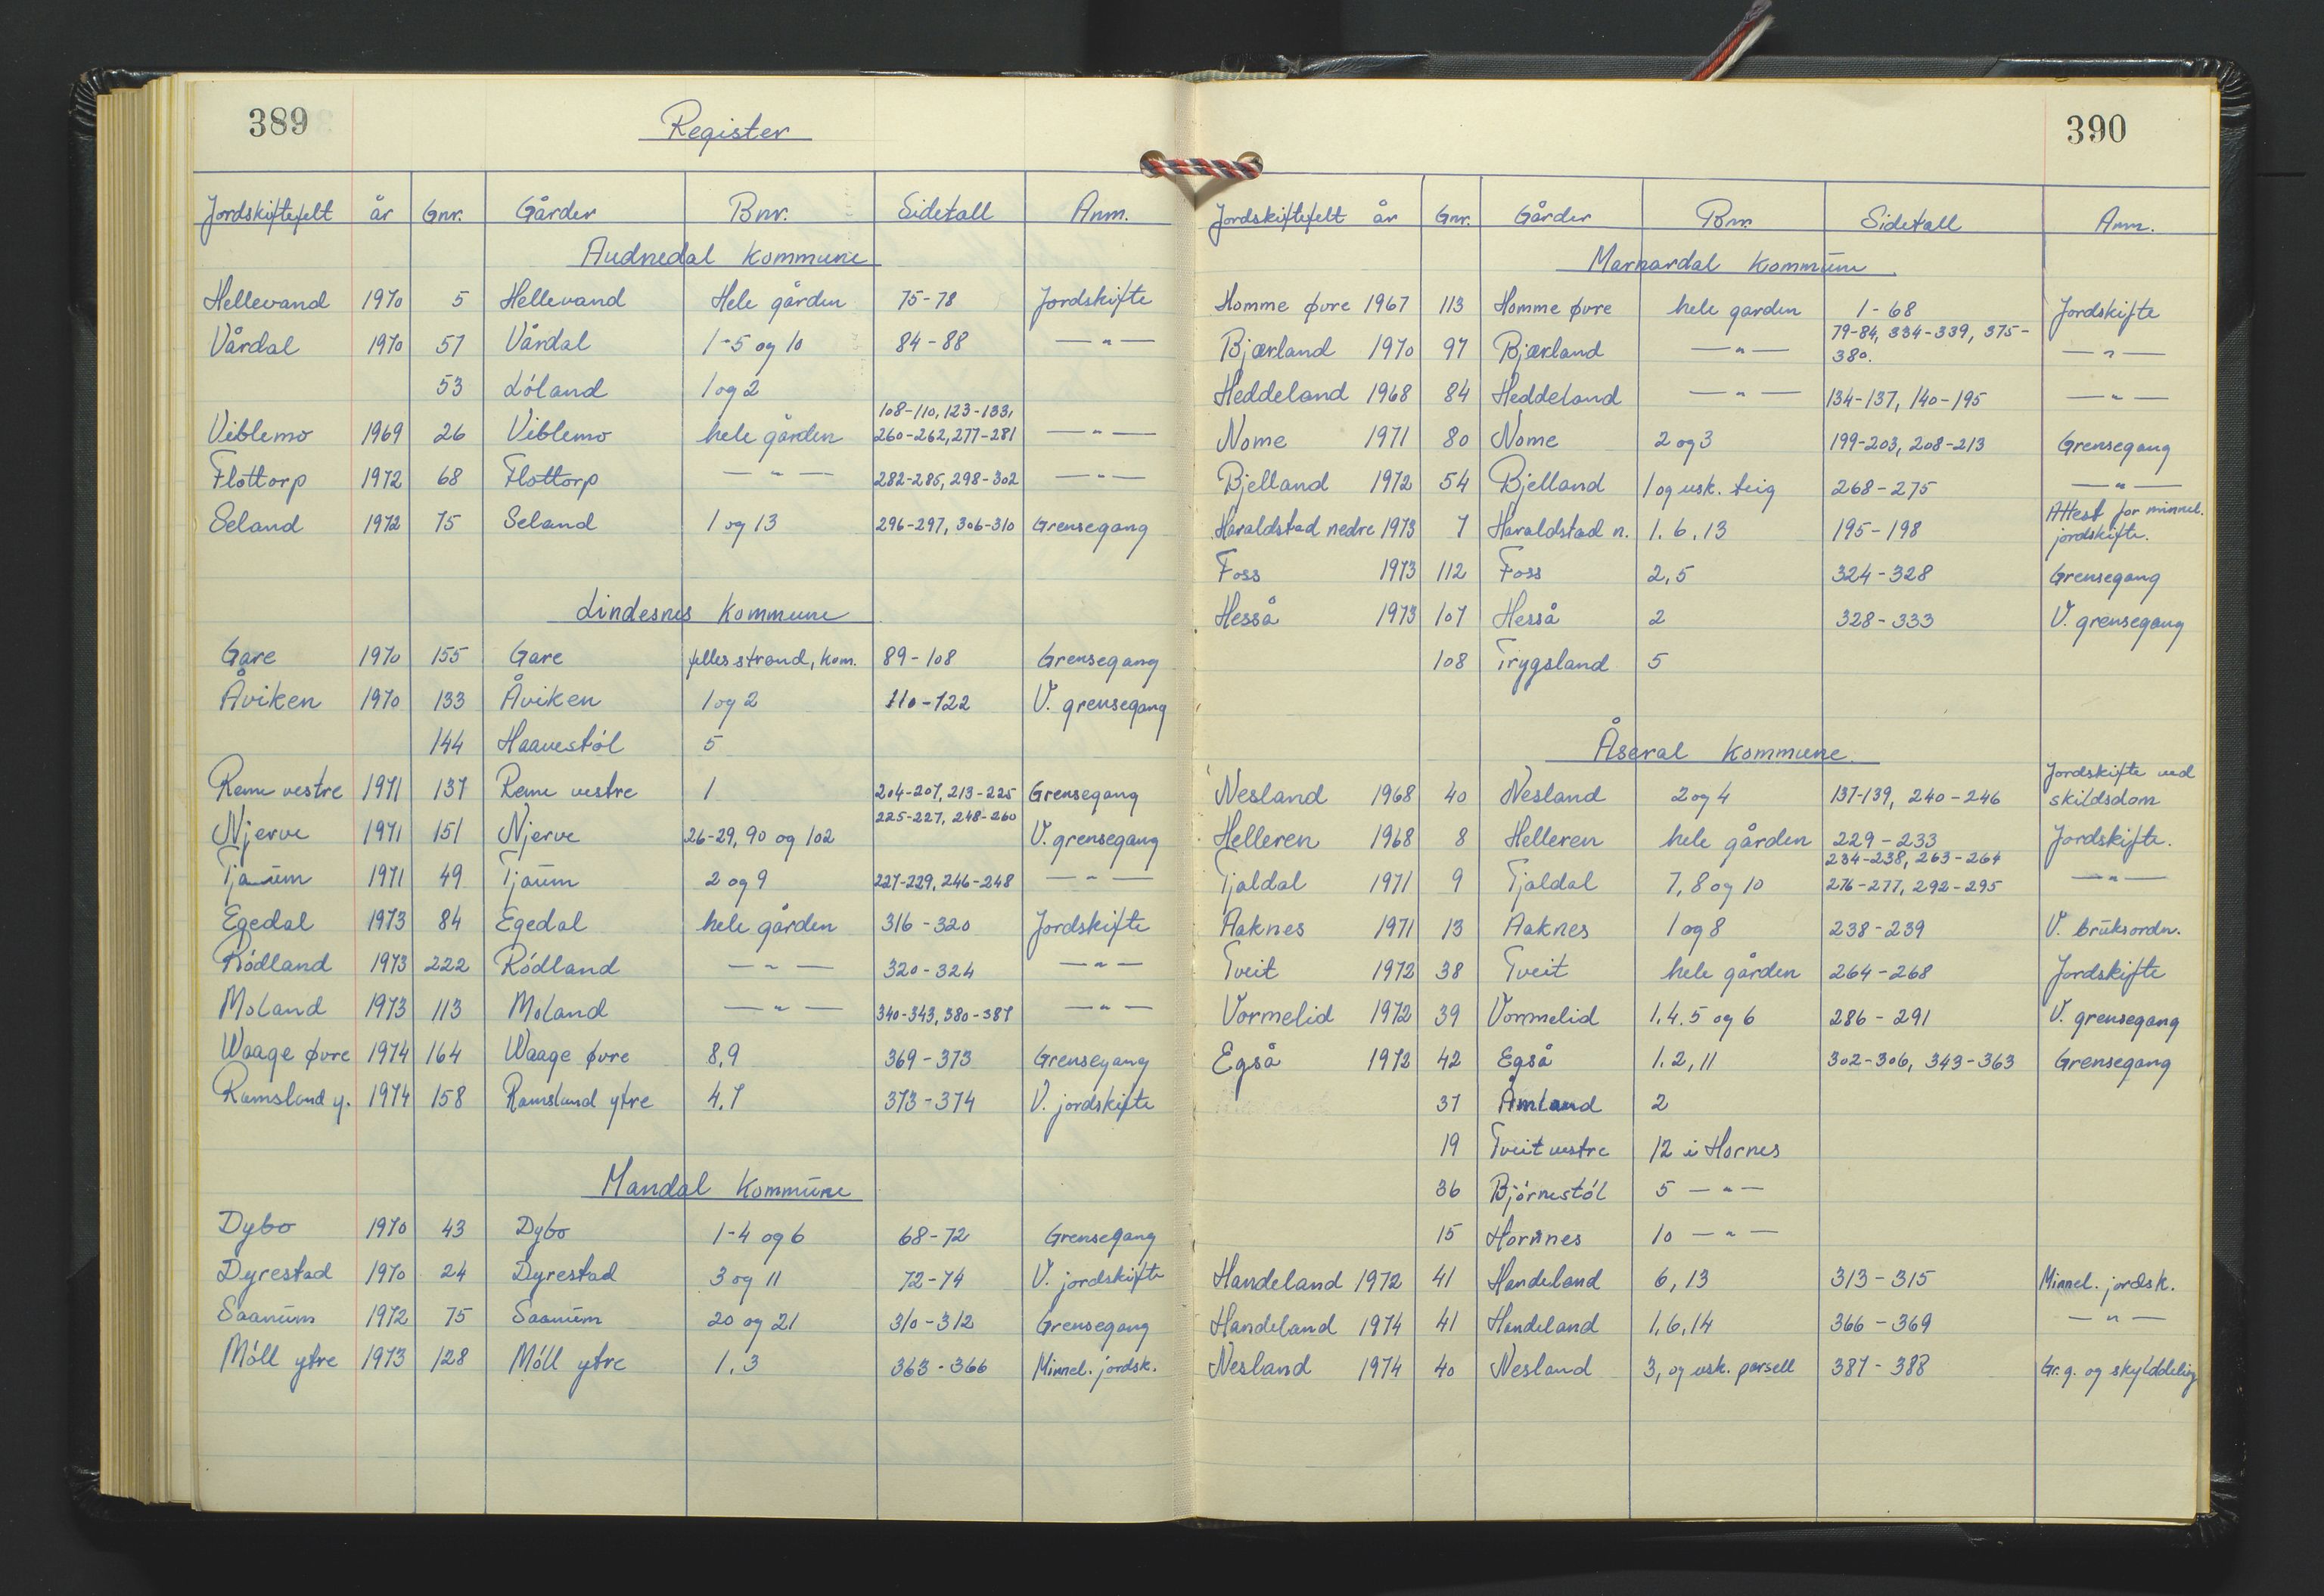 389
Register
Jordskiftefelt år Gnr. Gårder Bnr. Sidetall Anm.
Audnedal kommune
Hellevand 1970 5 Hellevand Hele gården 75-78 Jordskifte
Vårdal 1970 57 Vårdal 1-5 og 10 84-88 — " —
53 Lóland 1 og 2
108-110, 123-133,
Viblemo 1969 26 Viblemo hele gården 260-262, 277-281 — " —
Flottorp 1972 68 Flottorp — " — 282-285, 298-302 — " —
Seland 1972 75 Seland 1 og 13 296-297, 306-310 Grensegang
Lindesnes kommune
Gare 1970 155 Gare felles strand, kom. 89-108 Grensegang
Åviken 1970 133 Åviken 1 og 2 110-122 V. grensegang
144 Haavestól 5
Reme vestre 1971 137 Reme vestre 1 204-207, 213-225 Grensegang
225-227, 248-260
Njerve 1971 151 Njerve 26-29, 90 og 102 V. grensegang
Tjaum 1971 49 Tjaum 2 og 9 227-229, 246-248 — " —
Egedal 1973 84 Egedal hele gården 316-320 Jordskifte
Ródland 1973 222 Ródland — " — 320-324 — " —
Moland 1973 113 Moland — " — 340-343, 380-387 — " —
Waage øvre 1974 164 Waage øvre 8,9 369-373 Grensegang
Ramsland y. 1974 158 Ramsland ytre 4,7 373-374 V. jordskifte
Mandal kommune
Dybo 1970 43 Dybo 1-4 og 6 68-72 Grensegang
Dyrestad 1970 24 Dyrestad 3 og 11 72-74 V. jordskifte
Saanum 1972 75 Saanum 20 og 21 310-312 Grensegang
Móll ytre 1973 128 Móll ytre 1,3 363-366 Minnel. jordsk.
390
Jordskiftefelt år Gnr. Gårder Bnr. Sidetall Anm.
Marnardal kommune
Homme øvre 1967 113 Homme øvre hele garden 1-68 Jordskifte
79-84, 334-339, 375-
Bjærland 1970 97 Bjærland — " — 380. — " —
Heddeland 1968 84 Heddeland — " — 134-137, 140-195 — " —
Nome 1971 80 Nome 2 og 3 199-203, 208-213 Grensegang
Bjelland 1972 54 Bjelland 1 og usk. teig 268-275 — " —
Attest for minnel.
Haraldstad nedre 1973 7 Haraldstad n. 1. 6. 13 195-198 jordskifte.
Foss 1973 112 Foss 2,5 324-328 Grensegang
Hesså 1973 107 Hesså 2 328-333 V. grensegang
108 Trygsland 5
Åseral kommune
Jordskifte ved
Nesland 1968 40 Nesland 2 og 4 137-139, 240-246 skildsdom
Helleren 1968 8 Helleren hele gården 229-233 Jordskifte.
234-238, 263-264
Tjaldal 1971 9 Tjaldal 7, 8 og 10 276-277, 292-295 — " —
Aaknes 1971 13 Aaknes 1 og 8 238-239 V. bruksordn.
Tveit 1972 38 Tveit hele gården 264-268 Jordskifte
Vormelid 1972 39 Vormelid 1. 4. 5 og 6 286-291 V. grensegang
Egså 1972 42 Egså 1. 2, 11 302-306, 343-363 Grensegang
37 Åmland 2
19 Tveit vestre 12 i Hornes
36 Bjórnestól 5 — " —
15 Hornnes 10 — " —
Handeland 1972 41 Handeland 6, 13 313-315 Minnel. jordsk.
Handeland 1974 41 Handeland 1, 6, 14 366-369 — " —
Nesland 1974 40 Nesland 3, og usk. parsell 387-388 Gr.g. og skylddeling